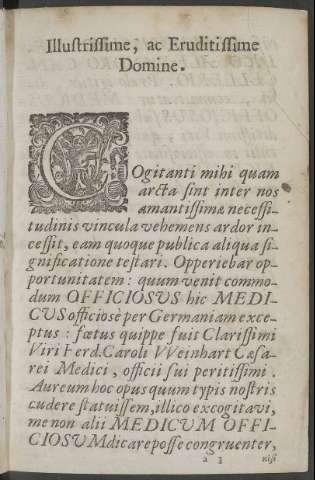 Illustrissime, ac Eruditissime
Domine.
COgitanti mihi quam
arcta sint inter nos
amantissimæ necessi-
tudinis vincula vehemens ardor in-
cessit, eam quoque publica aliqua si-
gnificatione testari. Opperiebar op-
portunitatem: quum venit commo-
dum OFFICIOSVS hic MEDI-
CVS officiosè per Germaniam exce-
ptus: fœtus quippe fuit Clarissimi
Viri Ferd. Caroli VVeinhart Cæsa-
rei Medici, officii sui peritissimi.
Aureum hoc opus quum typis nostris
cudere statuissem, illico excogitavi,
me non alii MEDICVM OFFI-
CIOSVM dicare posse congruenter,
a 3 nisi